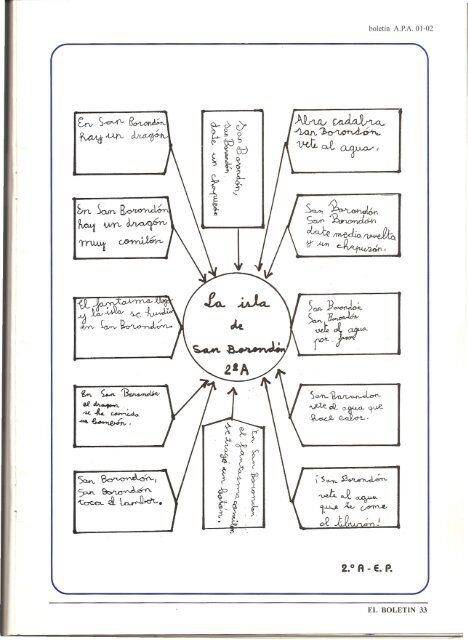 boletín A.P.A. 01-02
En San Borondón
hay un dragón
San Borondón,
San Borondón
date un chapuzón
Abra cadabra
San Borondón
vete al agua.
En San Borondón
hay un dragón
muy comilón
San Borondón
San Borondón
date media vuelta
y un chapuzón.
El fantasma llegó
y la isla se hundió
en San Borondón
La isla
de
San Borondón
2ºA
San Borondón
San Borondón
vete al agua
por
En San Borondón
el dragón
se ha comido
un bombón.
San Borondón
vete al agua que
hace calor.
San Borondón,
San Borondón
toca el tambor.
En San Borondón
el fantasma comilón
se tragó un balón.
¡San Borondón
vete al agua
que te come
el tiburón!
2.º A - E. P.
EL BOLETIN 33